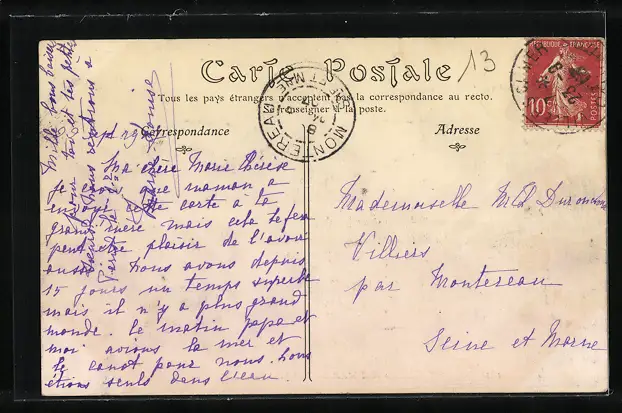 13
Carte Postale
Tous les pays étrangers n'acceptent pas la correspondance au recto.
Se renseigner à la poste.
Correspondance
Adresse
REPUBLIQUE FRANÇAISE
10
POSTES
MONTEREAU
SEINE ET MARNE
Ma chère Marie Thérèse
Je crois que maman a
envoyé cette carte à ta
grand'mère mais cela te fera
peut être plaisir de l'avoir
aussi. Nous avons depuis
15 jours un temps superbe
mais il n'y a plus grand
monde. Le matin papa et
moi avions la mer et
le canot pour nous. Nous
étions seuls dans l'eau.
Mille bons baisers
pour toi et tes
Nous rentrons à
Mademoiselle M.Th
Villiers
par Montereau
Seine et Marne